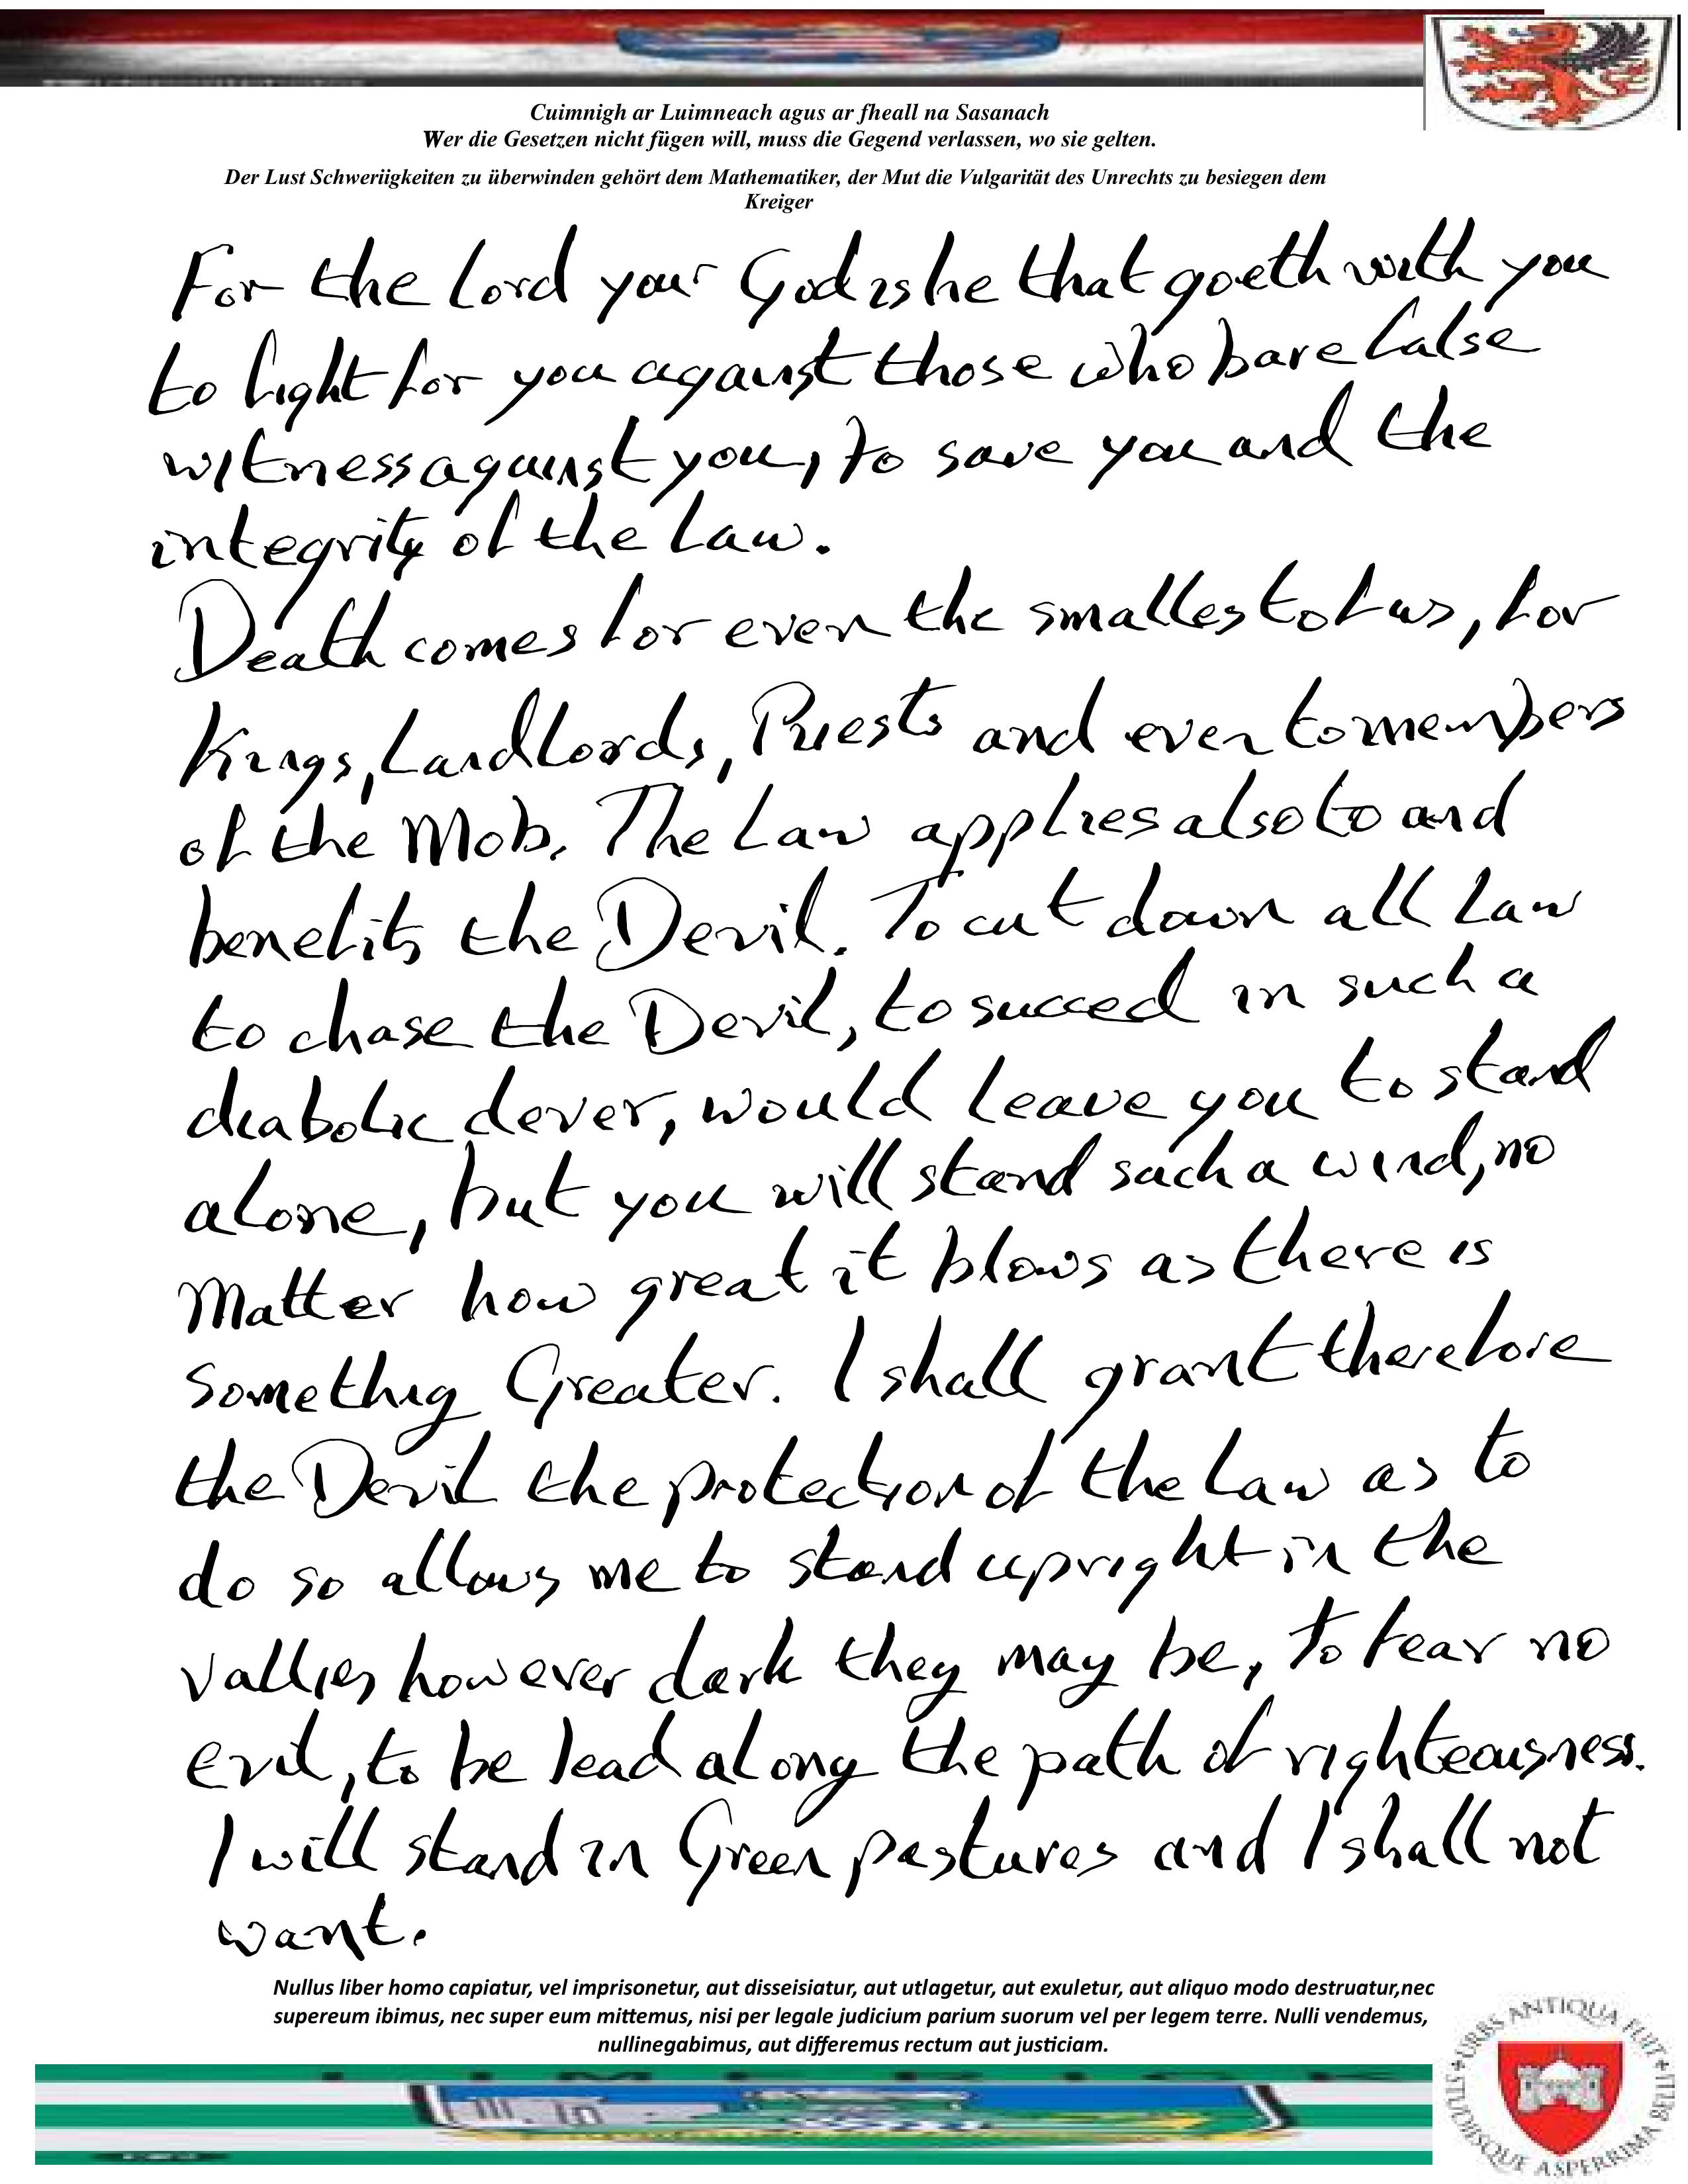 Cuimnigh ar Luimneach agus ar fheall na Sasanach
Wer die Gesetzen nicht fügen will, muss die Gegend verlassen, wo sie gelten.
Der Lust Schweriigkeiten zu überwinden gehört dem Mathematiker, der Mut die Vulgarität des Unrechts zu besiegen dem
Kreiger
For the lord your God is he that goeth with you
to fight for you against those who bare false
witness against you, to save you and the
integrity of the Law.
Death comes for even the smallest of us, for
Kings, Landlords, Priests and even to members
of the Mob. The Law applies also to and
benefits the Devil. To cut down all Law
to chase the Devil, to succeed in such a
diabolic clever, would leave you to stand
alone, but you will stand such a wind, no
Matter how great it blows as there is
Somethig Greater. I shall grant therefore
the Devil the protection of the Law as to
do so allows me to stand upright in the
vallies however dark they may be, to fear no
evil, to be lead along the path of righteousness.
I will stand in Green pastures and I shall not
want.
Nullus liber homo capiatur, vel imprisonetur, aut disseisiatur, aut utlagetur, aut exuletur, aut aliquo modo destruatur,nec
supereum ibimus, nec super eum mittemus, nisi per legale judicium parium suorum vel per legem terre. Nulli vendemus,
nullinegabimus, aut differemus rectum aut justiciam.
URBS ANTIQUA FUIT STUDIISQUE ASPERRIMA BELLI